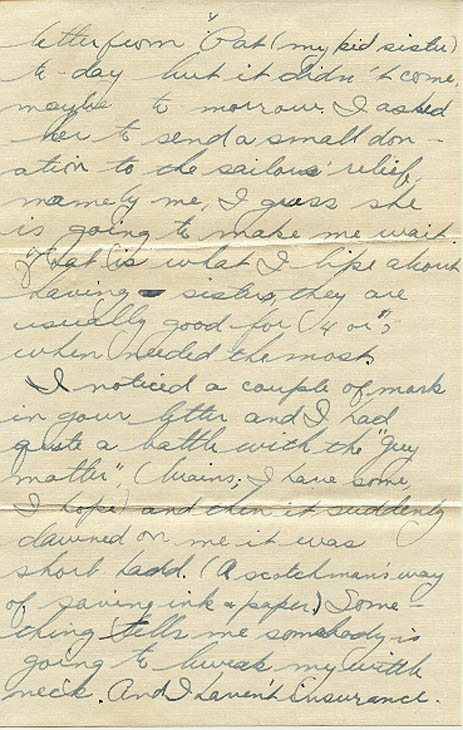 letter from "Pat (my kid sister)
to-day but it didn't come,
maybe to morrow. I asked
her to send a small don-
ation to the sailors' relief,
namely me, I guess she
is going to make me wait.
That is what I like about
having sisters, they are
usually good for $4 or $5
when needed the most.
I noticed a couple of mark
in your letter and I had
quite a battle with the "guy
matter", (brains; I have some,
I hope) and then it suddenly
dawned on me it was
short hadd. (A scotchman's way
of saving ink & paper.) Some-
thing tells me somebody is
going to break my
neck. And I haven't insurance.